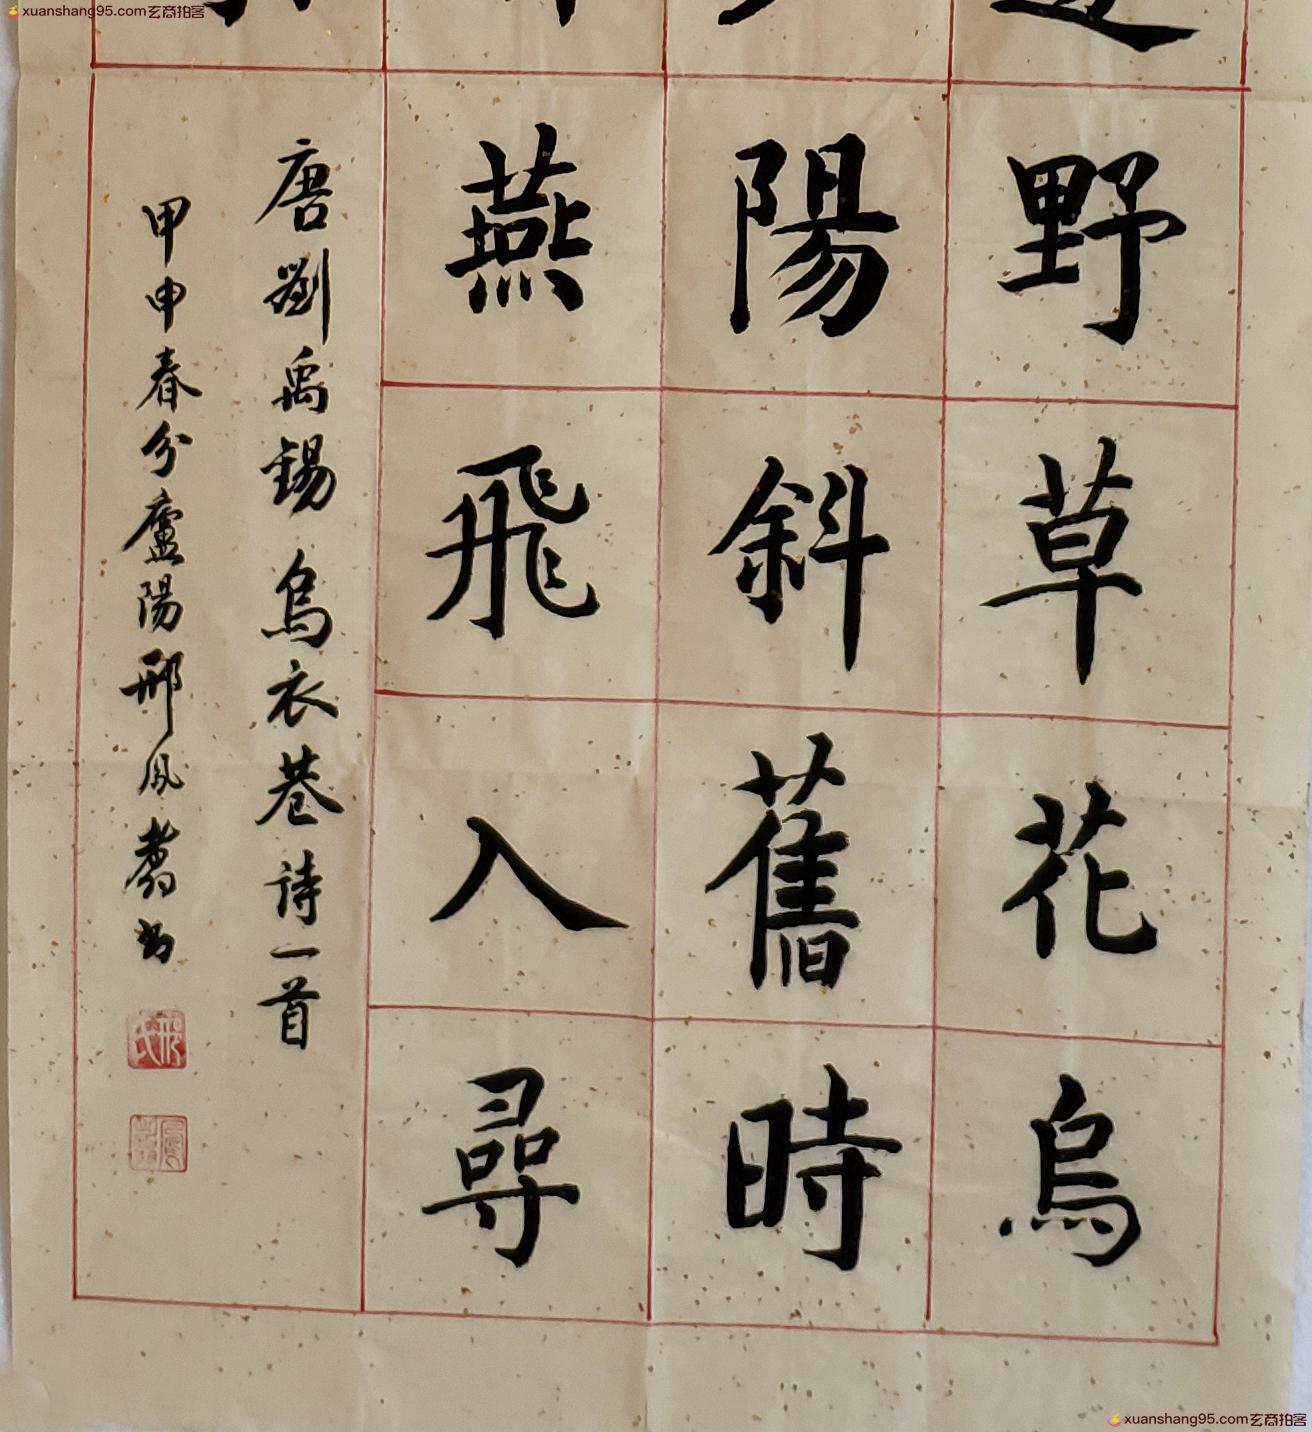 xuanshang95.com玄商拍客
野草花烏
陽斜舊時
燕飛入尋
唐劉禹錫烏衣巷詩一首
甲申春分廬陽邢鳳翥書
邢氏
xuanshang95.com玄商拍客